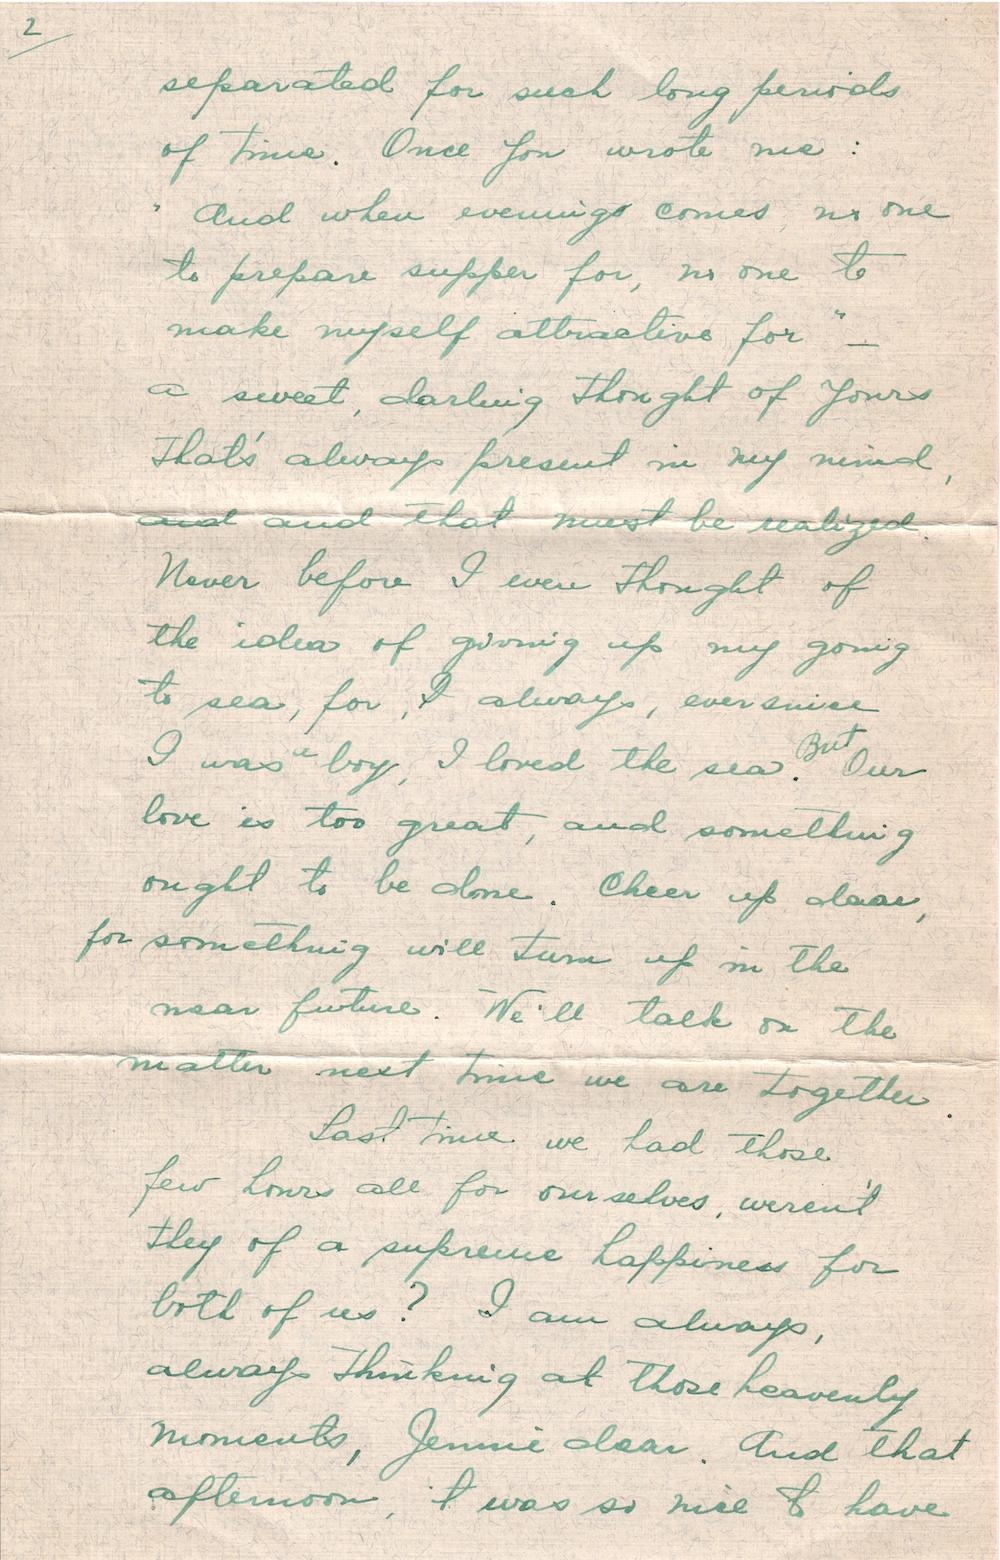 2
separated for such long periods
of time. Once you wrote me :
" And when evenings comes, no one
to prepare supper for, no one to
make myself attractive for " —
a sweet, darling thought of yours
that's always present in my mind,
and and that must be realized.
Never before I even thought of
the idea of giving up my going
to sea, for, I always, ever since
I was a boy, I loved the sea. But Our
love is too great, and something
ought to be done. Cheer up dear,
for something will turn up in the
near future. We'll talk on the
matter next time we are together.
Last time we had those
few hours all for ourselves, weren't
they of a supreme happiness for
both of us? I am always,
always thinking at those heavenly
moments, Jennie dear. And that
afternoon, it was so nice to have